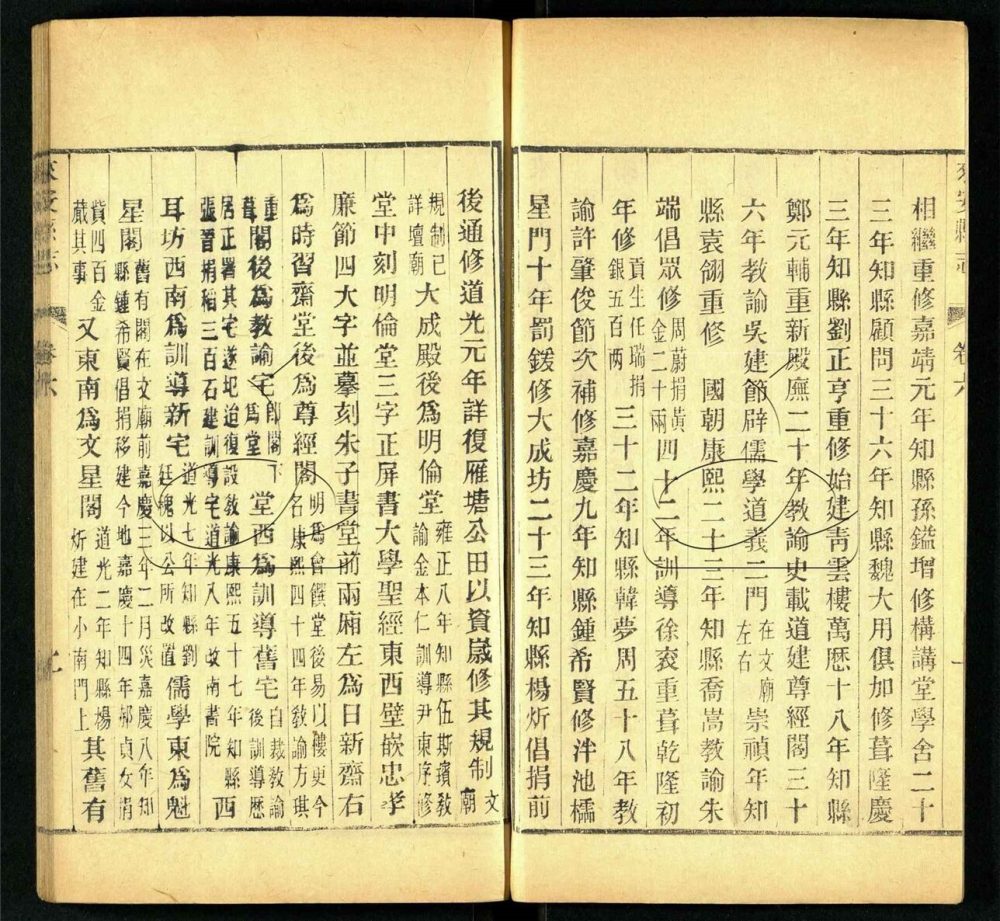 來安縣志
卷六
相繼重修嘉靖元年知縣孫鎰增修構講堂學舍二十
三年知縣顧問三十六年知縣魏大用俱加修葺隆慶
三年知縣劉正亨重修始建青雲樓萬歷十八年知縣
鄭元輔重新殿廡二十年教諭史載道建尊經閣三十
六年教諭吳建節辟儒學道義二門在文廟左右崇禎年知
縣袁翎重修 國朝康熙二十三年知縣喬嵩教諭朱
端倡眾修周蔚捐黃金二十兩四十二年訓導徐袞重葺乾隆初
年修貢生任瑞捐銀五百两三十二年知縣韓夢周五十八年教
諭許肇俊節次補修嘉慶九年知縣鍾希賢修泮池櫺
星門十年罰鍰修大成坊二十三年知縣楊炘倡捐前
後通修道光元年詳復雁塘公田以資歲修其規制文廟
規制已詳壇廟大成殿後爲明倫堂雍正八年知縣伍斯璸教諭金本仁訓導尹東序修
堂中刻明倫堂三字正屏書大學聖經東西壁嵌忠孝
廉節四大字並摹刻朱子書堂前兩廂左爲日新齋右
爲時習齋堂後爲尊經閣明爲會饌堂後易以樓更今名康熙四十四年教諭方琪
重葺閣後爲教諭宅即閣下爲堂堂西爲訓導舊宅自裁教諭後訓導歷
居正署其宅遂圮迨復設教諭康熙五十七年知縣
張晉捐稻三百石建訓導宅道光八年改南書院西
耳坊西南爲訓導新宅道光七年知縣劉廷槐以公所改置儒學東爲魁
星閣舊有閣在文廟前嘉慶三年二月災嘉慶八年知縣鍾希賢倡捐移建今地嘉慶十四年郝貞女捐
貲四百金蕆其事又東南爲文星閣道光二年知縣楊炘建在小南門上其舊有
來安縣志
卷六